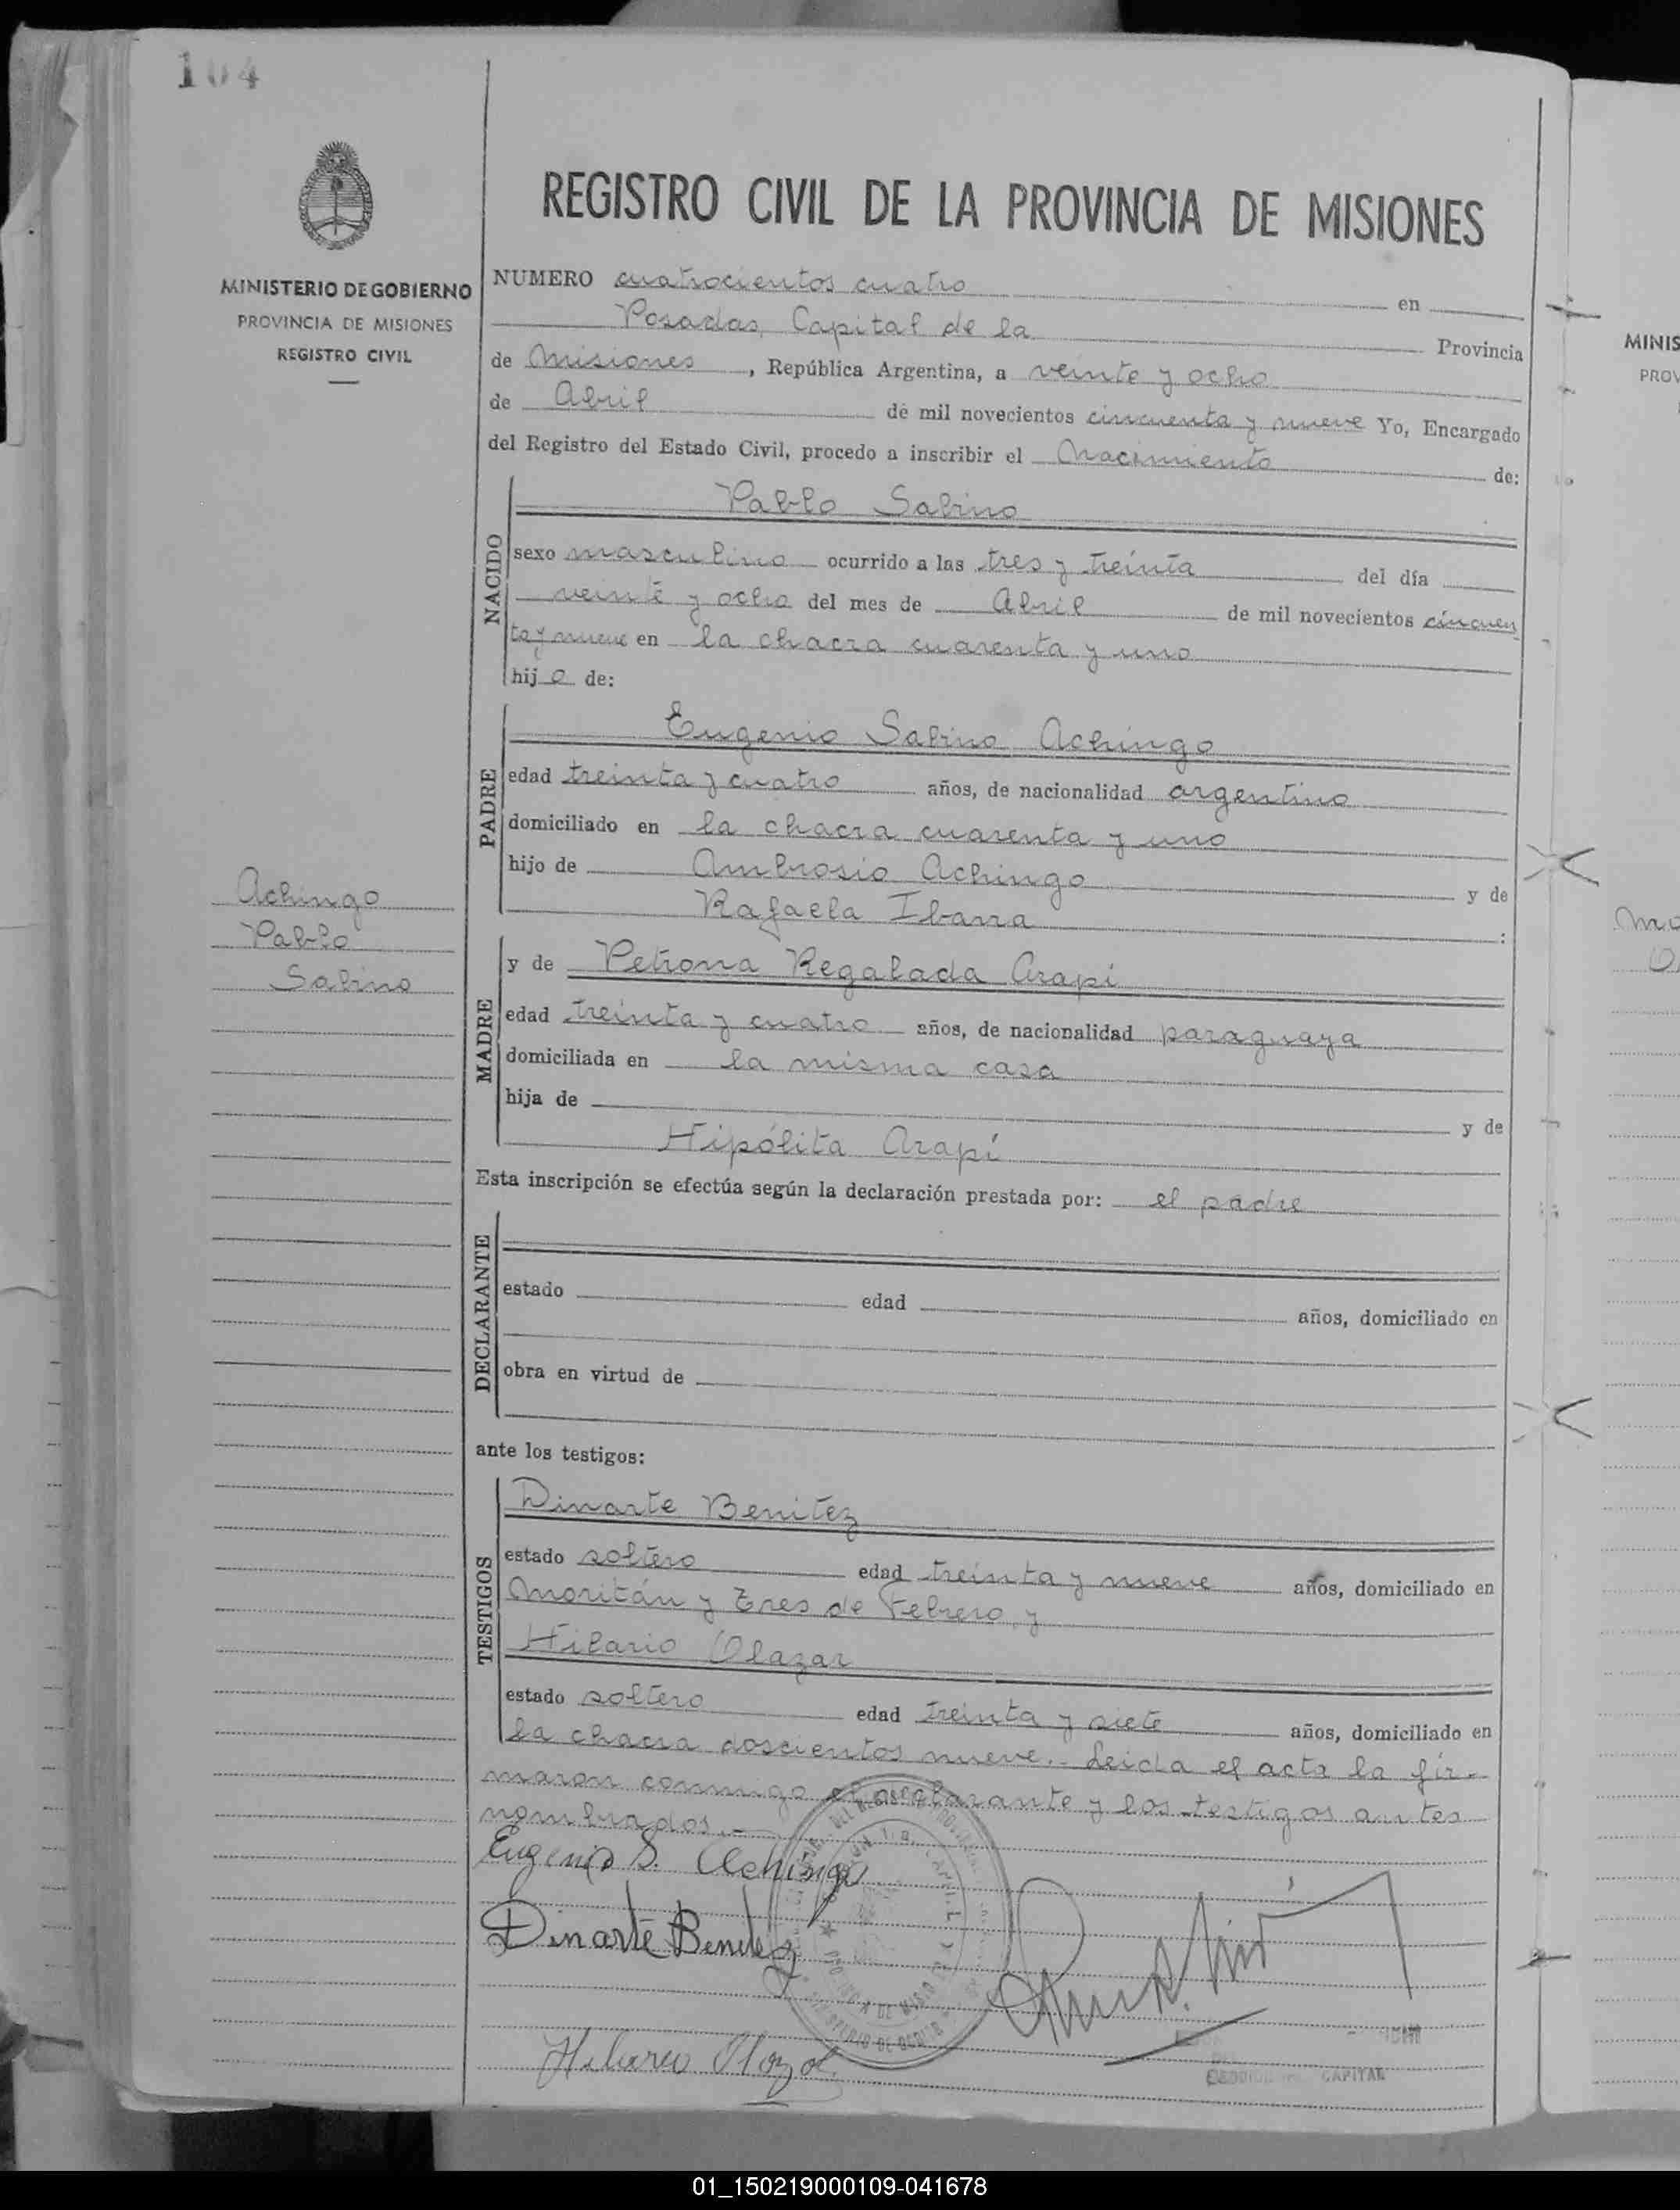 104
REGISTRO CIVIL DE LA PROVINCIA DE MISIONES
MINISTERIO DE GOBIERNO
PROVINCIA DE MISIONES
REGISTRO CIVIL
NUMERO cuatrocientos cuatro en
Posadas, Capital de la Provincia
de Misiones, República Argentina, a veinte y ocho
de Abril de mil novecientos cincuenta y nueve Yo, Encargado
del Registro del Estado Civil, procedo a inscribir el Nacimiento de:
NACIDO
Pablo Sabino
sexo masculino ocurrido a las tres y treinta del día
veinte y ocho del mes de Abril de mil novecientos cincuen
ta y nueve en la chacra cuarenta y uno
hijo de:
PADRE
Eugenio Sabino Achingo
edad treinta y cuatro años, de nacionalidad argentino
domiciliado en la chacra cuarenta y uno
hijo de Ambrosio Achingo y de
Rafaela Ibarra :
Achingo
Pablo
Sabino
MADRE
y de Petrona Regalada Arapí
edad treinta y cuatro años, de nacionalidad paraguaya
domiciliada en la misma casa
hija de y de
Hipólita Arapí
Esta inscripción se efectúa según la declaración prestada por: el padre
DECLARANTE
estado edad años, domiciliado en
obra en virtud de
ante los testigos:
TESTIGOS
Dinarte Benitez
estado soltero edad treinta y nueve años, domiciliado en
Moritán y Tres de Febrero, y
Hilario Olazar
estado soltero edad treinta y siete años, domiciliado en
la chacra doscientos nueve.- Leida el acta la fir-
maron conmigo el declarante y los testigos antes
nombrados.-
Eugenio S. Achingo
Dinarte Benitez
Hilario Olazar
CAPITAL
MINIS
PROV
01_150219000109-041678